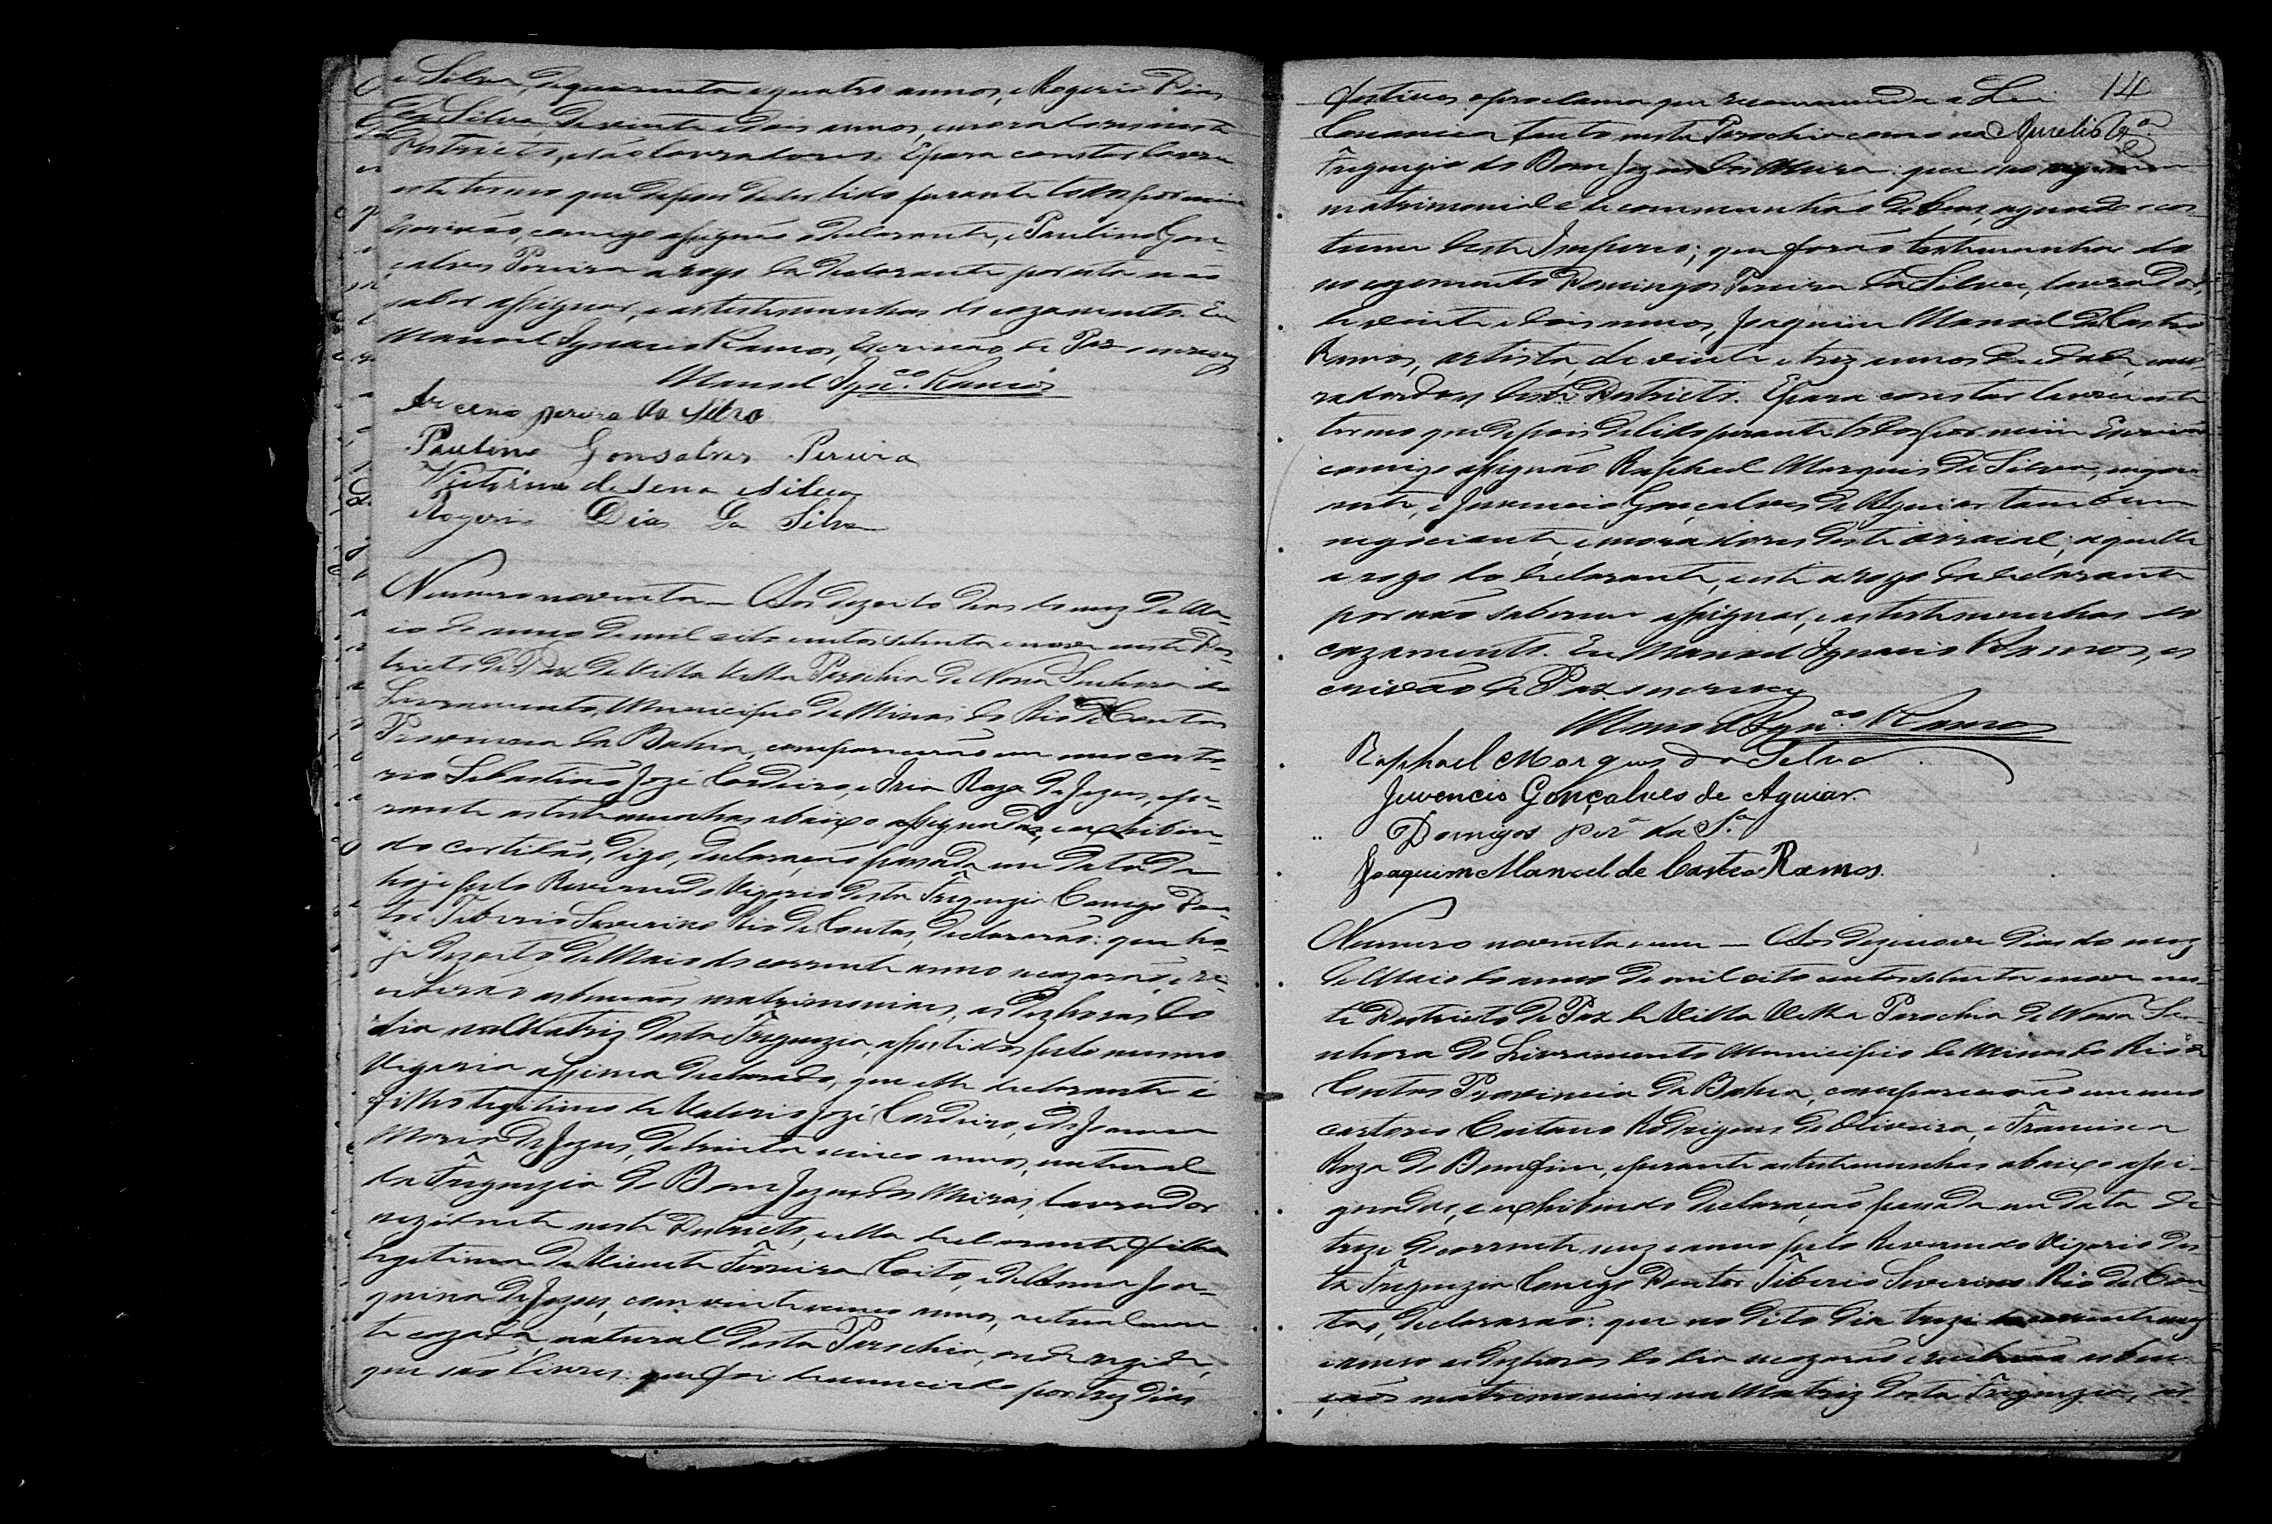 e Silva, de quarenta e quatro annos, e Rogerio Dias
da Silva, de vinte e dois annos, moradores neste
Districto, e são lavradores. E para constar lavrei
este termo que depois de ser lido perante todos por mim
Escrivão, comigo assignão o declarante, e Paulino Gon-
çalves Pereira a rogo da declarante por esta não
saber assignar, e as testemunhas do cazamento. Eu
Manoel Ignacio Ramos, Escrivão de Paz o escrevy
Manoel Ign.co Ramos
Arcenio pereira da Silva
Paulino Gonsalves Pereira
Victorino de Sena e Silva
Rogerio Dias da Silva
Numero noventa — Aos dezoito dias do mez de Ma-
io do anno de mil oito centos setenta e nove neste Des-
tricto de Paz de Villa Velha Parochia de Nossa Senhora do
Livramento, Municipio de Minas do Rio de Contas
Provincia da Bahia, comparecerão em meu carto-
rio Sebastião Jozé Cordeiro, e Iria Roza de Jezus, e pe-
rante as testemunhas abaixo assignadas, e exhibin-
do certidão, digo, declaração passada em data de
hoje pelo Reverendo Vigario desta Freguezia Conego Dou-
tor Tiberio Severino Rio de Contas, declararão: que ho-
je dezoito de Maio do corrente anno se cazarão, e re-
ceberão as bençãos matrimoniaes, as dez horas do
dia na Matriz desta Freguezia, assistidos pelo mesmo
Vigario assima declarado; que elle declarante é
filho legitimo de Valerio Jozé Cordeiro, e de Joanna
Maria de Jezus, de trinta e cinco annos, natural
da Freguezia do Bom Jezus dos Meiras, lavrador
rezidente neste Districto, e ella declarante filha
legitima de Vicente Ferreira Coito, e de Anna Joa-
quina de Jezus, com vinte e cinco annos, actualmen-
te cazada, natural desta Parochia, onde rezide,
que são livres: que foi denunciado por trez dias
14
festivos o proclama que recommenda a Lei
Canonica tanto nesta Parochia como na Aurelio
Freguezia do Bom Jezus dos Meiras: que seo regimen
matrimonial é de communhão de bens, segundo o cos-
tume deste Imperio; que forão testemunhas do
seo cazamento Domingos Pereira da Silva, lavrador,
de vinte e dois annos, Joaquim Manoel de Castro
Ramos, artista, de vinte e trez annos de edade, mo-
radores deste Districto. E para constar lavrei este
termo que depois de lido perante todos por mim Escrivão
comigo assignão Raphael Marques da Silva, negoci-
ante, e Juvencio Gonçalves de Aguiar tambem
negociante, e moradores deste arraial; aquelle
a rogo do declarante, e este a rogo da declarante
por não saberem assignar, e as testemunhas do
cazamento. Eu Manoel Ignacio Ramos, es-
crivão de Paz o escrevy
Manoel Ign.co Ramos
Raphael Marques da Silva
Juvencio Gonçalves de Aguiar.
Domigos per.a da S.a
Joaquim Manoel de Castro Ramos.
Numero noventa e um — Aos dezenove dias do mez
de Maio do anno de mil oito centos setenta e nove nes-
te Districto de Paz de Villa Velha Parochia de Nossa Se-
nhora do Livramento Municipio de Minas do Rio de
Contas Provincia da Bahia, comparecerão em meo
cartorio Caitano Rodrigues de Oliveira, e Francisca
Roza do Bomfim, e perante as testemunhas abaixo assi-
gnadas, e exhibindo declaração passada em data de
treze do corrente mez e anno pelo Reverendo Vigario des-
ta Freguezia Conego Doutor Tiberio Severino Rio de Con-
tas, declararão: que no dito dia treze do corrente mez
e anno as dez horas do dia se cazarão e receberão as ben-
çãos matrimoniaes na Matriz desta Freguezia, as-